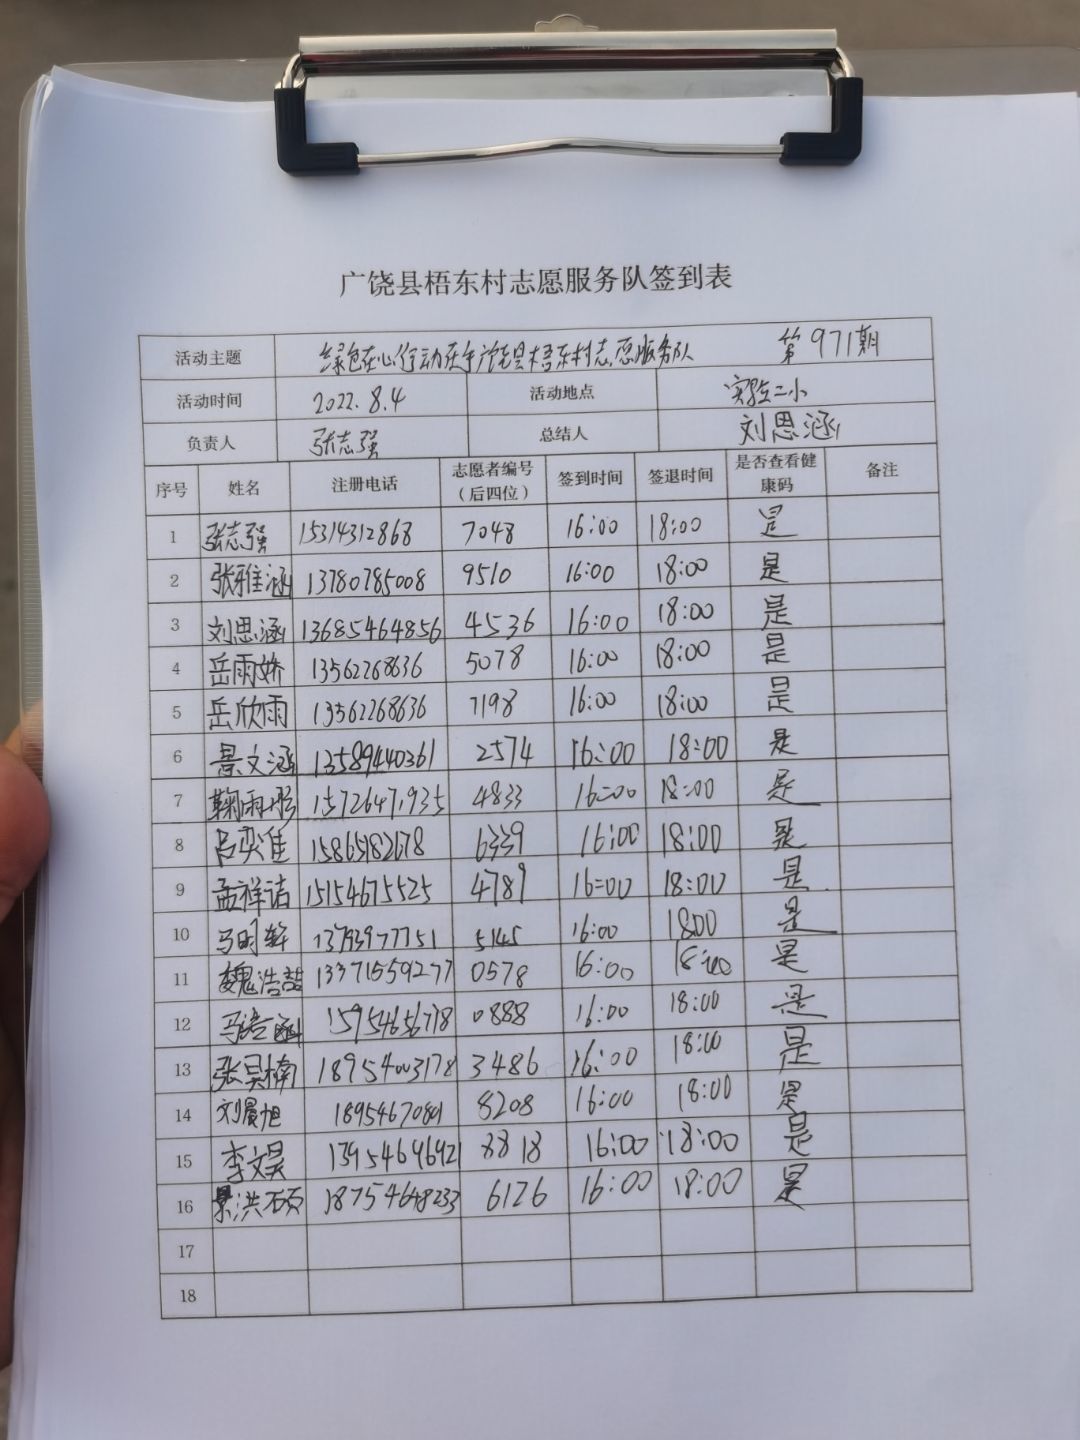 广饶县梧东村志愿服务队签到表
活动主题 绿色在心行动在手广饶县梧东村志愿服务队 第971期
活动时间 2022.8.4 活动地点 实验二小
负责人 张志强 总结人 刘思涵
序号 姓名 注册电话 志愿者编号（后四位） 签到时间 签退时间 是否查看健康码 备注
1 张志强 15314312868 7048 16:00 18:00 是
2 张雅涵 13780785008 9510 16:00 18:00 是
3 刘思涵 13685464856 4536 16:00 18:00 是
4 岳雨娇 13562268636 5078 16:00 18:00 是
5 岳欣雨 13562268636 7198 16:00 18:00 是
6 景文涵 13589440361 2574 16:00 18:00 是
7 鞠雨彤 15726471935 4833 16:00 18:00 是
8 吕奕佳 15865182678 6339 16:00 18:00 是
9 孟祥诺 15154675525 4789 16:00 18:00 是
10 马明轩 13793977751 5145 16:00 18:00 是
11 魏浩喆 13371559277 0578 16:00 18:00 是
12 15954656778 0888 16:00 18:00 是
13 张昊楠 18954003178 3486 16:00 18:00 是
14 刘晨旭 8208 16:00 18:00 是
15 李文昊 13954696921 8818 16:00 18:00 是
16 景洪硕 18754648233 6126 16:00 18:00 是
17
18